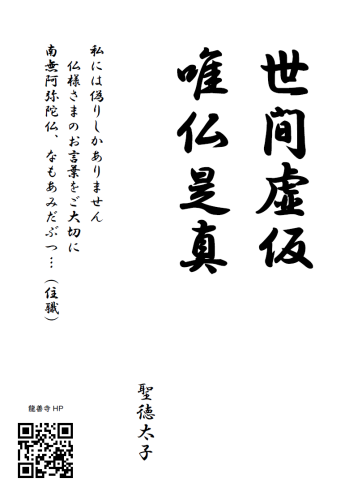 世間虚仮
唯仏是真
聖徳太子
私には偽りしかありません
仏様さまのお言葉をご大切に
南無阿弥陀仏、なもあみだぶつ…（住職）
龍善寺HP